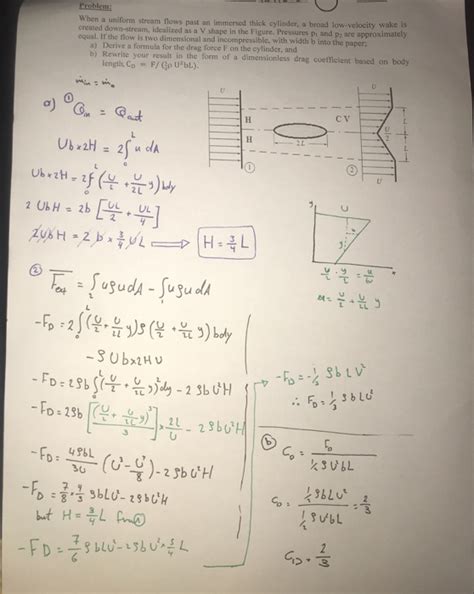 Problem:
When a uniform stream flows past an immersed thick cylinder, a broad low-velocity wake is
created down-stream, idealized as a V shape in the Figure. Pressures p₁ and p₂ are approximately
equal. If the flow is two dimensional and incompressible, with width b into the paper;
a) Derive a formula for the drag force F on the cylinder, and
b) Rewrite your result in the form of a dimensionless drag coefficient based on body
length, C_D = F/ (½ρ U²bL).
ṁ_in = ṁ_o
a) ① Q_in = Q_out
Ub×2H = 2∫₀ᴸ u dA
Ub×2H = 2∫₀ᴸ (U/2 + U/2L y) bdy
2 UbH = 2b [UL/2 + UL/4]
2UbH = 2b × 3/4 UL ⟹ H = 3/4 L
U
U
H
C V
H
2L
L
U/2
L
①
②
U
y
U
u
y
x
② F_ext = ∫₂ uρudA − ∫₁ uρudA
−F_D = 2∫₀ᴸ (U/2 + U/2L y) ρ (U/2 + U/2L y) bdy
− ρUb×2HU
−F_D = 2ρb∫₀ᴸ (U/2 + U/2L y)² dy − 2ρbU²H
−F_D = 2ρb [(U/2 + U/2L y)³/3] × 2L/U − 2ρbU²H
−F_D = 4ρbL/3U (U³ − U³/8) − 2ρbU²H
−F_D = 7/8 × 4/3 ρbLU² − 2ρbU²H
but H = 3/4 L from ①
−F_D = 7/6 ρbLU² − 2ρbU² × 3/4 L
u = U/2 + U/2L y
−F_D = −1/3 ρbLU²
∴ F_D = 1/3 ρbLU²
ⓑ C_D = F_D / ½ρU²bL
C_D = 1/3 ρbLU² / 1/2 ρU²bL = 2/3
C_D = 2/3